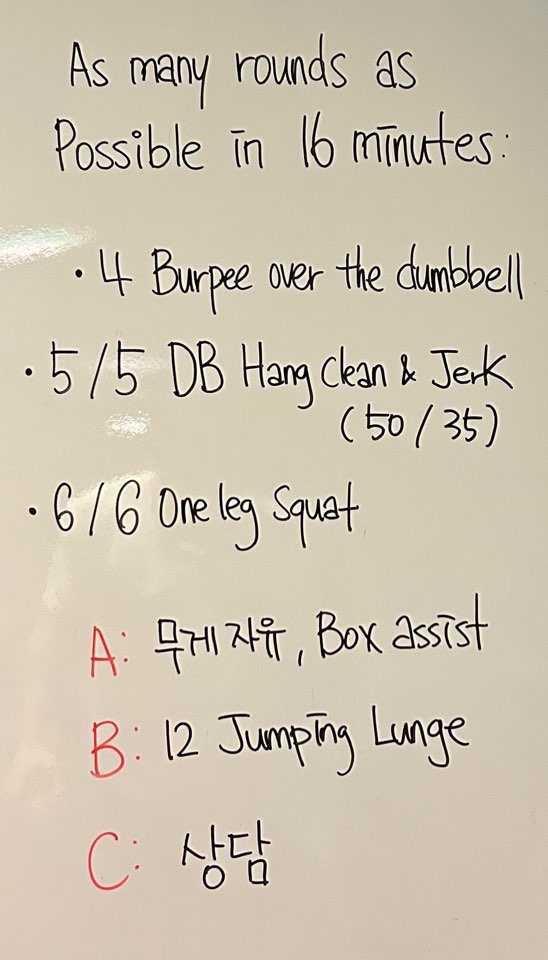 As many rounds as
Possible in 16 minutes:
• 4 Burpee over the dumbbell
• 5/5 DB Hang Clean & Jerk
(50/35)
• 6/6 One leg Squat
A: 무게자유, Box assist
B: 12 Jumping Lunge
C: 상담